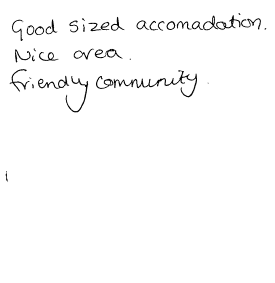 Good sized accomadation.
Nice area.
friendly community.